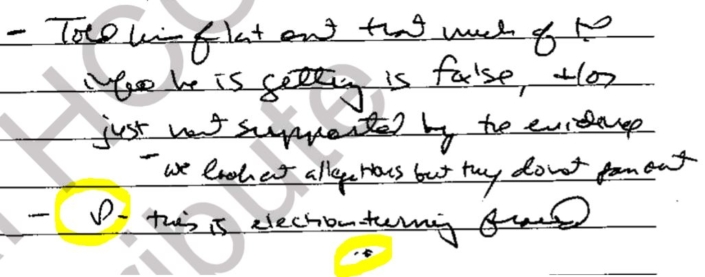 - Told him flat out that much of the
info he is getting is false, +/or
just not supported by the evidence
- we look at allegations but they don't pan out
- P - this is election turning fraud